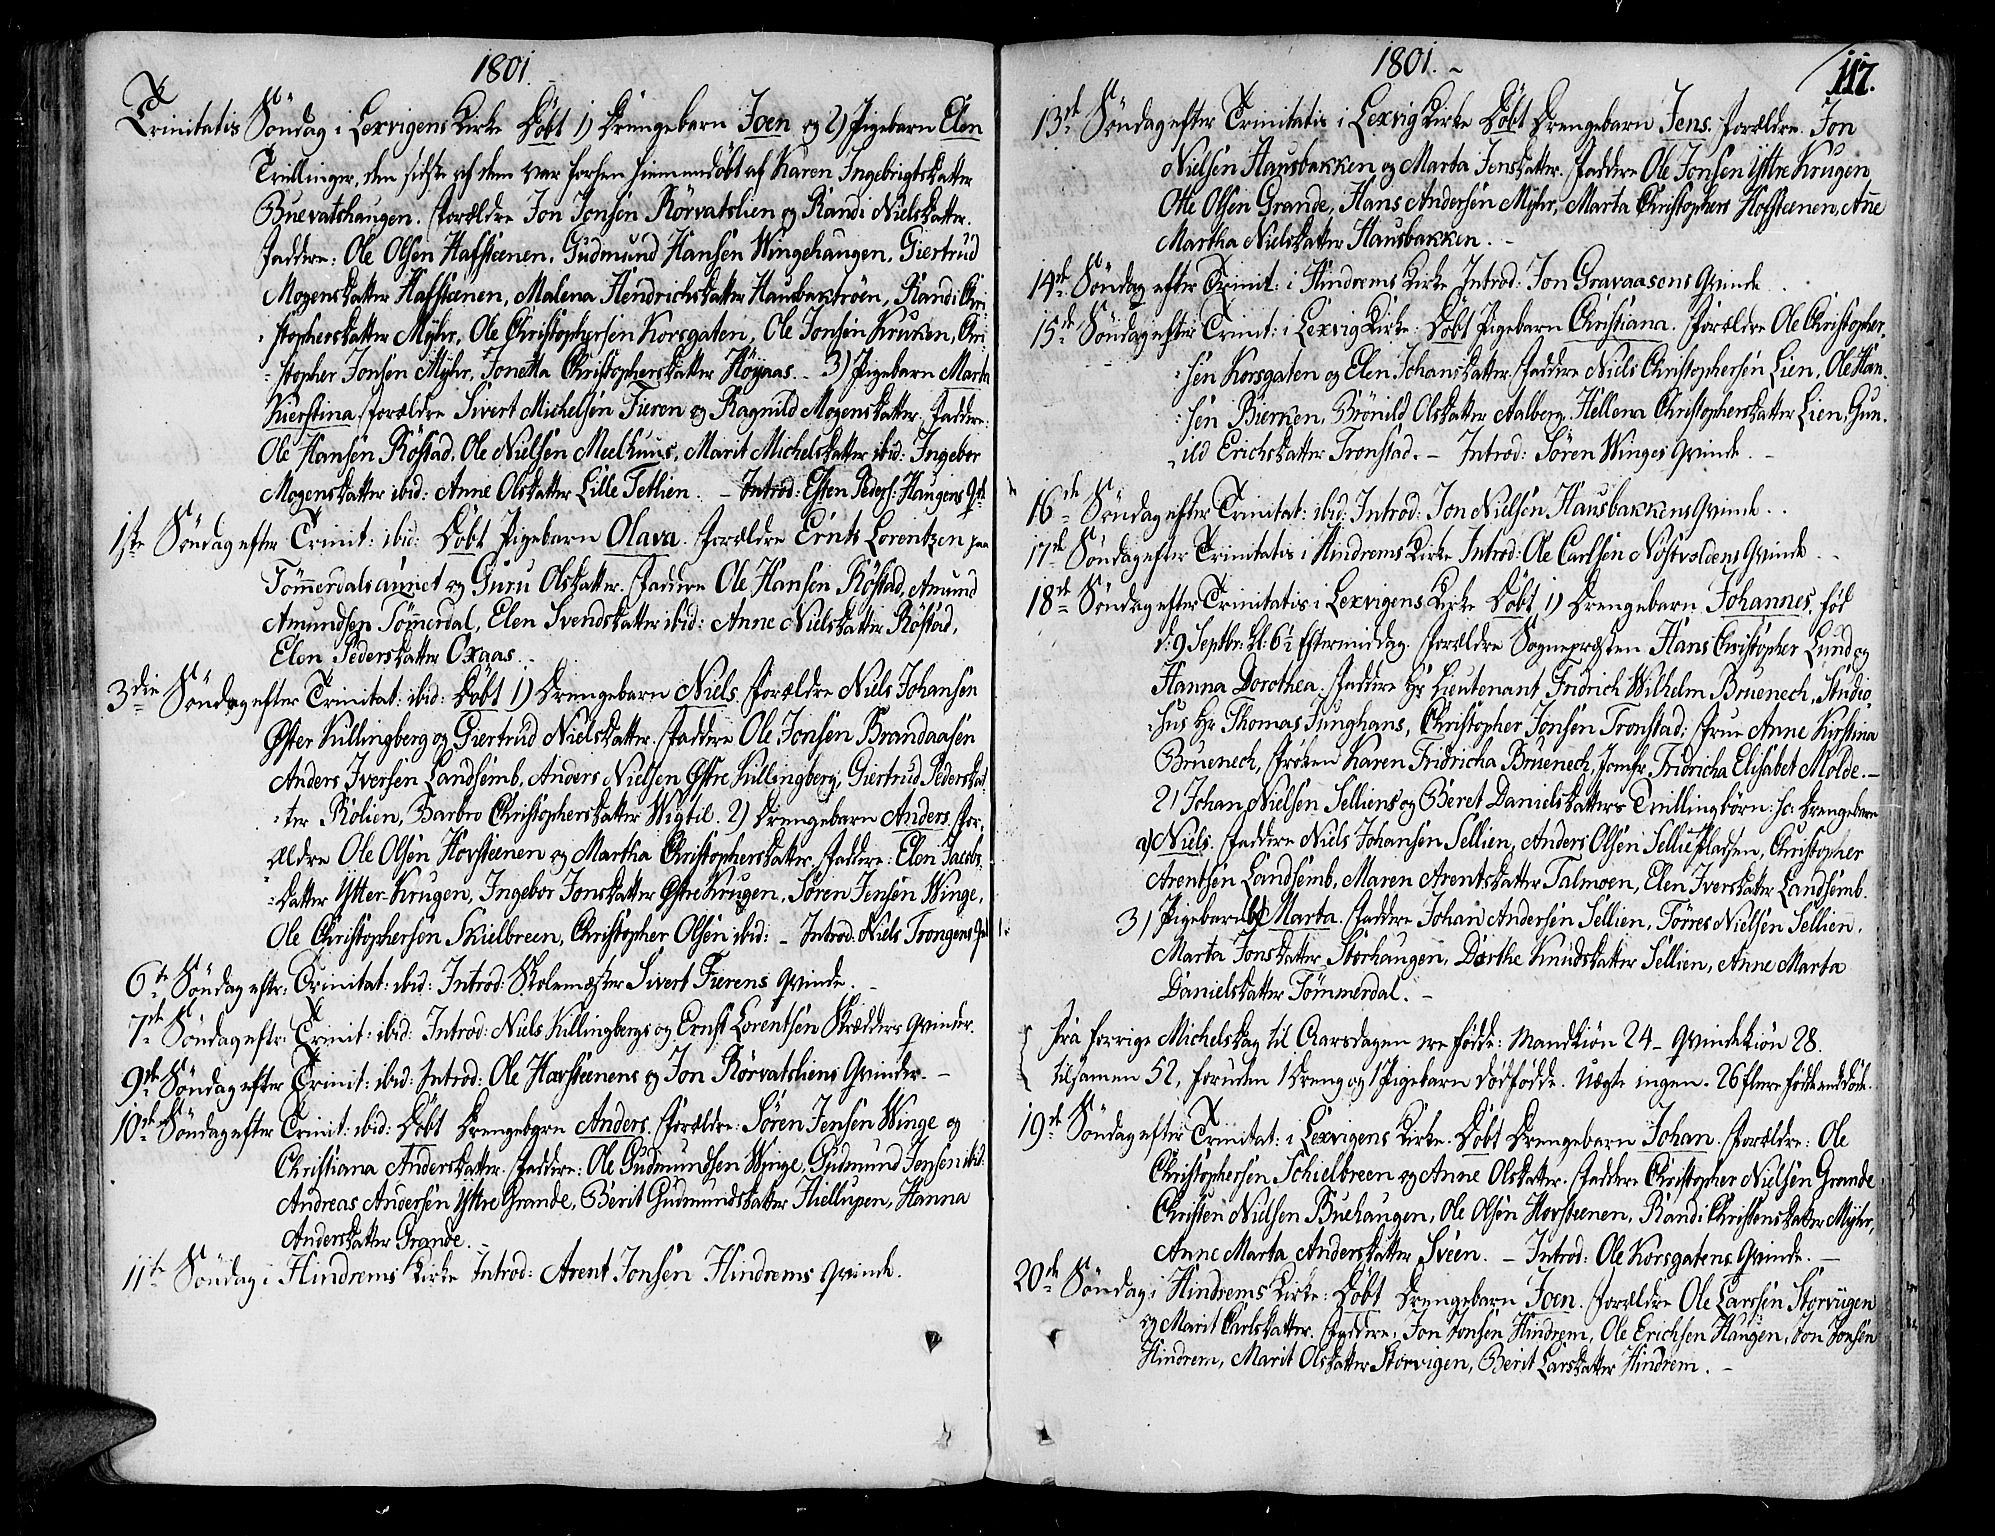 1801.
Trinitatis Søndag i Lexvigens Kirke Døbt 1) Drengebarn Joen og 2) Pigebarn Elen
Tvillinger, den sidste af dem var forhen hiemmedøbt af Karen Ingebrigtsdatter
Buevatshaugen. Forældre Jon Jonsen Rørvatslien og Randi Nielsdatter.
Faddere: Ole Olsen Hafsteenen, Gudmund Hansen Wingehaugen, Giertrud
Mogensdatter Hafsteenen, Malena Hendrichsdatter Hausbaktrøen, Randi Chri
stophersdatter Myhr, Ole Christophersen Korsgaten, Ole Jonsen Kruken, Chri
stopher Jonsen Myhr, Jonetta Christophersdatter Høyaas. - 3) Pigebarn Marta
Kierstina. Forældre Sivert Michelsen Tieren og Ragnild Mogensdatter. Faddere:
Ole Hansen Røstad, Ole Nielsen Meelhuus, Marit Michelsdatter ibid: Ingebor
Mogensdatter ibid: Anne Olsdatter Lille Tetlien. - Introd: Esten Peders: Haugens Qv:
1ste Søndag efter Trinit: ibid: Døbt Pigebarn Olava. Forældre Ernts Lorentzen paa
Tømmerdalsaunet og Guru Olsdatter. Faddere Ole Hansen Røstad, Amund
Amundsen Tømmerdal, Elen Svendsdatter ibid: Anne Nielsdatter Røstad,
Elen Pedersdatter Oxaas.
3die Søndag efter Trinitat: ibid: Døbt 1) Drengebarn Niels. Forældre Niels Johansen
Øster Killingberg og Giertrud Nielsdatter. Faddere Ole Jonsen Brandaasen
Anders Iversen Landsemb, Anders Nielsen Østre Killingberg, Giertrud Pedersdat
ter Rølien, Barbro Christophersdatter Wigtil. 2) Drengebarn Anders. For
ældre Ole Olsen Hovsteenen og Martha Christophersdatter. Faddere: Elen Jacobs
datter Ytter-Krugen, Ingebor Jonsdatter Østre Krugen, Søren Jensen Winge,
Ole Christophersen Skielbreen, Christopher Olsen ibid: - Introd. Niels Trongens Qv:
6te Søndag eftr: Trinitat: ibid: Introd: Skolemester Sivert Tierens Qvinde. -
7de Søndag eftr: Trinit: ibid: Introd: Niels Killingbergs og Ernst Lorentsen Skrædders Qvinder.
9de Søndag efter Trinit: ibid: Introd: Ole Hovsteenens og Jon Rørvatsliens Qvinder. -
10de Søndag efter Trinit: ibid: Døbt Drengebarn Anders. Forældre: Søren Jensen Winge og
Christiana Andersdatter. Faddere: Ole Gudmundsen Winge, Gudmund Jensen ibid:
Andreas Andersen Yttre Grande, Berit Gudmundsdatter Hiellupen, Hanna
Andersdatter Grande. -
11te Søndag i Hindrems Kirke Introd: Arent Jonsen Hindrems Qvinde.
1801.
117.
13de Søndag efter Trinitatis i Lexvig Kirke Døbt Drengebarn Jens. Forældre. Jon
Nielsen Hausbakken og Marta Jensdatter. Faddere Ole Jonsen Yttre Krugen
Ole Olsen Grande, Hans Andersen Myhr, Marta Christophers Hofsteenen, Ane
Martha Nielsdatter Hausbakken. -
14de Søndag efter Trinit: i Hindrems Kirke Introd: Jon Gravaasens Qvinde.
15de Søndag efter Trinit: i Lexvig Kirke: Døbt Pigebarn Christiana. Forældre Ole Christopher
sen Korsgaten og Elen Johansdatter. Faddere Niels Christophersen Lien, Ole Han
sen Bierken, Brønild Olsdatter Aalberg, Hellena Christophersdatter Lien, Gun
ild Erichsdatter Tronstad. - Introd: Søren Winges Qvinde. -
16de Søndag efter Trinitat: ibid: Introd: Jon Nielsen Hausbakkens Qvinde.
17de Søndag efter Trinitatis i Hindrems Kirke Introd: Ole Carlsen Nostvoldens Qvinde.
18de Søndag efter Trinitatis i Lexvigens Kirke Døbt 1) Drengebarn Johannes, fød
d: 9 Septbr: Kl: 6½ Eftermiddag. Forældre Sognepresten Hans Christopher Lund og
Hanna Dorothea. Faddere Hr Lieutenant Fridrich Wilhelm Bruenech, Studio
sus Hr Thomas Junghans, Christopher Jonsen Tronstad, Frue Anne Kirstina
Bruenech, Frøken Karen Fridricha Bruenech, Jomfr. Fridricha Elisabet Molde. -
2) Johan Nielsen Selliens og Beret Danielsdatters Tvillingbørn: sc: Drengebarn
a) Niels. Faddere Niels Johansen Sellien, Anders Olsen Selliepladsen, Christopher
Arentsen Landsemb, Maren Arentsdatter Talmoen, Elen Iversdatter Landsemb.
3) Pigebarn b) Marta. Faddere Johan Andersen Sellien, Tørres Nielsen Sellien,
Marta Jonsdatter Storhaugen, Dorthe Knudsdatter Sellien, Anne Marta
Danielsdatter Tømmerdal. -
Fra forrige Michelsdag til Aarsdagen ere fødde: Mandkiøn 24 - Qvindekiøn 28.
tilsamen 52, foruden 1 Dreng og 1 Pigebarn dødfødde. Uægte ingen. 26 flere fødde end døde.
19de Søndag efter Trinitat: i Lexvigens Kirke. Døbt Drengebarn Johan. Forældre: Ole
Christophersen Schielbreen og Anne Olsdatter. Faddere Christopher Nielsen Grande
Christen Nielsen Buehaugen, Ole Olsen Hovsteenen, Randi Christensdatter Myhr,
Anne Marta Andersdatter Sveen. - Introd: Ole Korsgatens Qvinde. -
20de Søndag i Hindrems Kirke: Døbt Drengebarn Joen. Forældre Ole Larssen Storvigen
og Marit Carlsdatter. Faddere, Jon Jonsen Hindrem, Ole Erichsen Haugen, Jon Jonsen
Hindrem, Marit Olsdatter Storvigen, Berit Larsdatter Hindrem. -